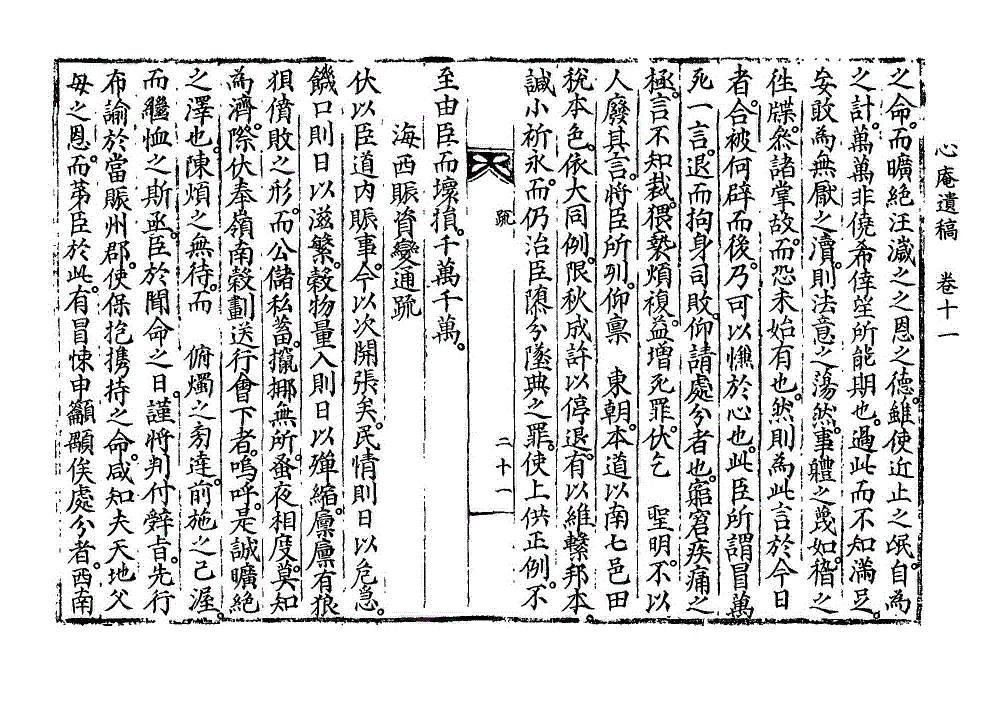 心庵遺稿　卷十一
之命。而曠絶汪濊之之恩之德。雖使近止之氓。自爲
之計。萬萬非僥希倖望所能期也。過此而不知滿足。
妄敢爲無厭之瀆。則法意之蕩然。事體之蔑如。稽之
徃牒。叅諸掌故。而恐未始有也。然則爲此言於今日
者。合被何辟而後。乃可以憔於心也。此臣所謂冒萬
死一言。退而拘身司敗。仰請處分者也。窮窘疾痛之
極。言不知裁。猥褻煩複。益增死罪。伏乞　聖明。不以
人廢其言。將臣所列。仰禀　東朝。本道以南七邑田
稅本色。依大同例。限秋成許以停退。有以維繫邦本
諴小祈永。而仍治臣隳分墜典之罪。使上供正例。不
疏
二十一
至由臣而壞損。千萬千萬。
海西賑資變通疏
伏以臣道內賑事。今以次開張矣。民情則日以危急。
饑口則日以滋繁。穀物量入則日以殫縮。廩廩有狼
狽僨敗之形。而公儲私蓄。攛挪無所。蚤夜相度。莫知
爲濟。際伏奉嶺南穀劃送行會下者。嗚呼。是誠曠絶
之澤也。陳煩之無待。而　俯燭之旁達。前施之已渥。
而繼恤之斯亟。臣於聞命之日。謹將判付辭旨。先行
布諭於當賑州郡。使保抱擕持之命。咸知夫天地父
母之恩。而第臣於此。有冒悚申籲。顒俟處分者。西南